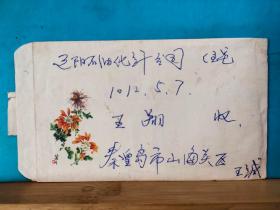 辽阳石油化纤公司
1012.5.7.
王翔 收
秦皇岛市山海关区
王